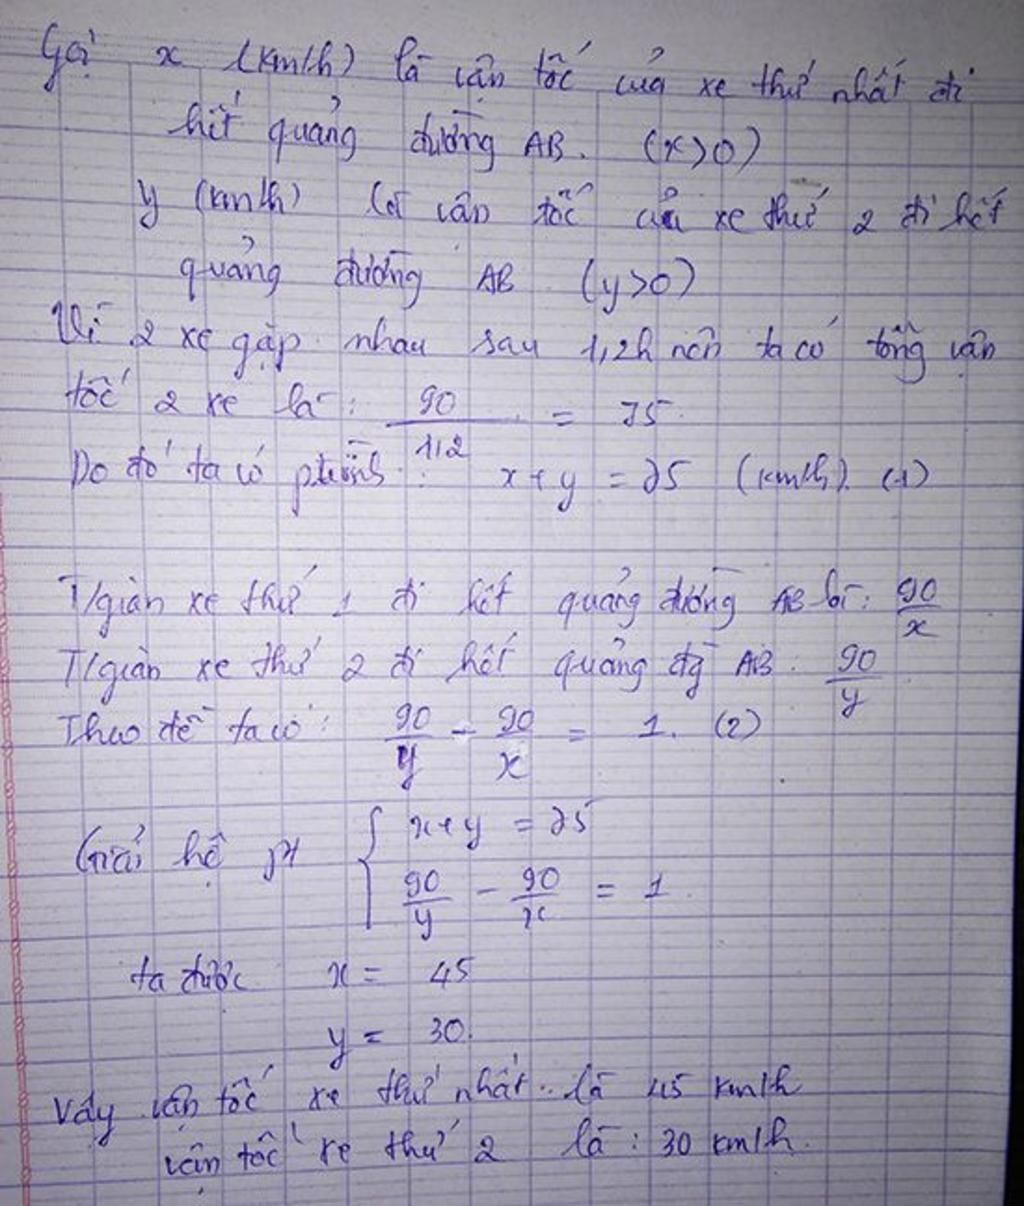 Gọi x (km/h) là vận tốc của xe thứ nhất đi
hết quảng đường AB. (x>0)
y (km/h) là vận tốc của xe thứ 2 đi hết
quảng đường AB (y>0)
Vì 2 xe gặp nhau sau 1,2h nên ta có tổng vận
tốc 2 xe là: 90/1,2 = 75
Do đó ta có ptrình: x+y = 75 (km/h). (1)
T/gian xe thứ 1 đi hết quảng đường AB là: 90/x
T/gian xe thứ 2 đi hết quảng đg AB. 90/y
Theo đề ta có: 90/y - 90/x = 1. (2)
Giải hệ pt { x+y = 75
90/y - 90/x = 1
ta được x = 45
y = 30.
Vậy vận tốc xe thứ nhất là 45 km/h
vận tốc xe thứ 2 là: 30 km/h.